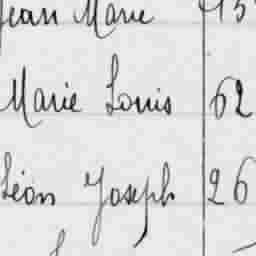 Jean Marie
Marie Louis 62
Léon Joseph 26